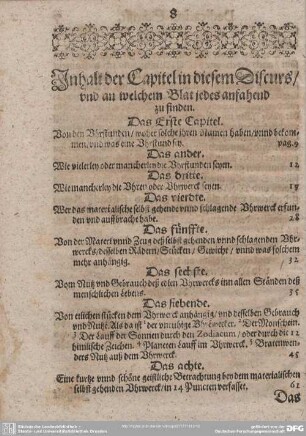 8
Inhalt der Capitel in diesem Discurs/
vnd an welchem Blat jedes anfahend
zu finden.
Das Erste Capitel.
Von den Vhrstunden/ woher solche ihren Namen haben/ vnnd bekom-
men, vnd was eine Vhrstund sey. pag. 9
Das ander.
Wie vielerley oder mancherley die Vhrstunden seyen. 12
Das dritte.
Wie mancherley die Vhren oder Vhrwerck seyen. 19
Das vierdte.
Wer das materialische selbst gehende vnnd schlagende Vhrwerck erfun-
den vnd auffbracht habe. 28
Das fünffte.
Von der Materi vnnd Zeug deß selbst gehenden vnnd schlagenden Vhr-
wercks, desselben Rädern/ Stücken/ Gewichte/ vnnd was solchem
mehr anhängig. 32
Das sechste.
Vom Nutz vnd Gebrauch deß edlen Vhrwercks inn allen Ständen deß
menschlichen lebens. 35
Das siebende.
Von etlichen stücken dem Vhrwerck anhängig/ vnd desselben Gebrauch
vnd Nutz. Als da ist der vnruhige Vhrwecker. Der Monschein.
Der lauff der Sonnen durch den Zodiacum / oder durch die 12
himlische Zeichen. Planeten lauff im Vhrwerck. Bratenwen-
ders Nutz auß dem Vhrwerck. 45
Das achte.
Eine kurtze vnnd schöne geistliche Betrachtung bey dem materialischen
selbst gehenden Vhrwerck/ in 14 Puncten verfasset. 61
Das